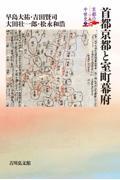 京都の中世史
早島大祐・吉田賢司
大田壮一郎・松永和浩
首都京都と室町幕府
吉川弘文館